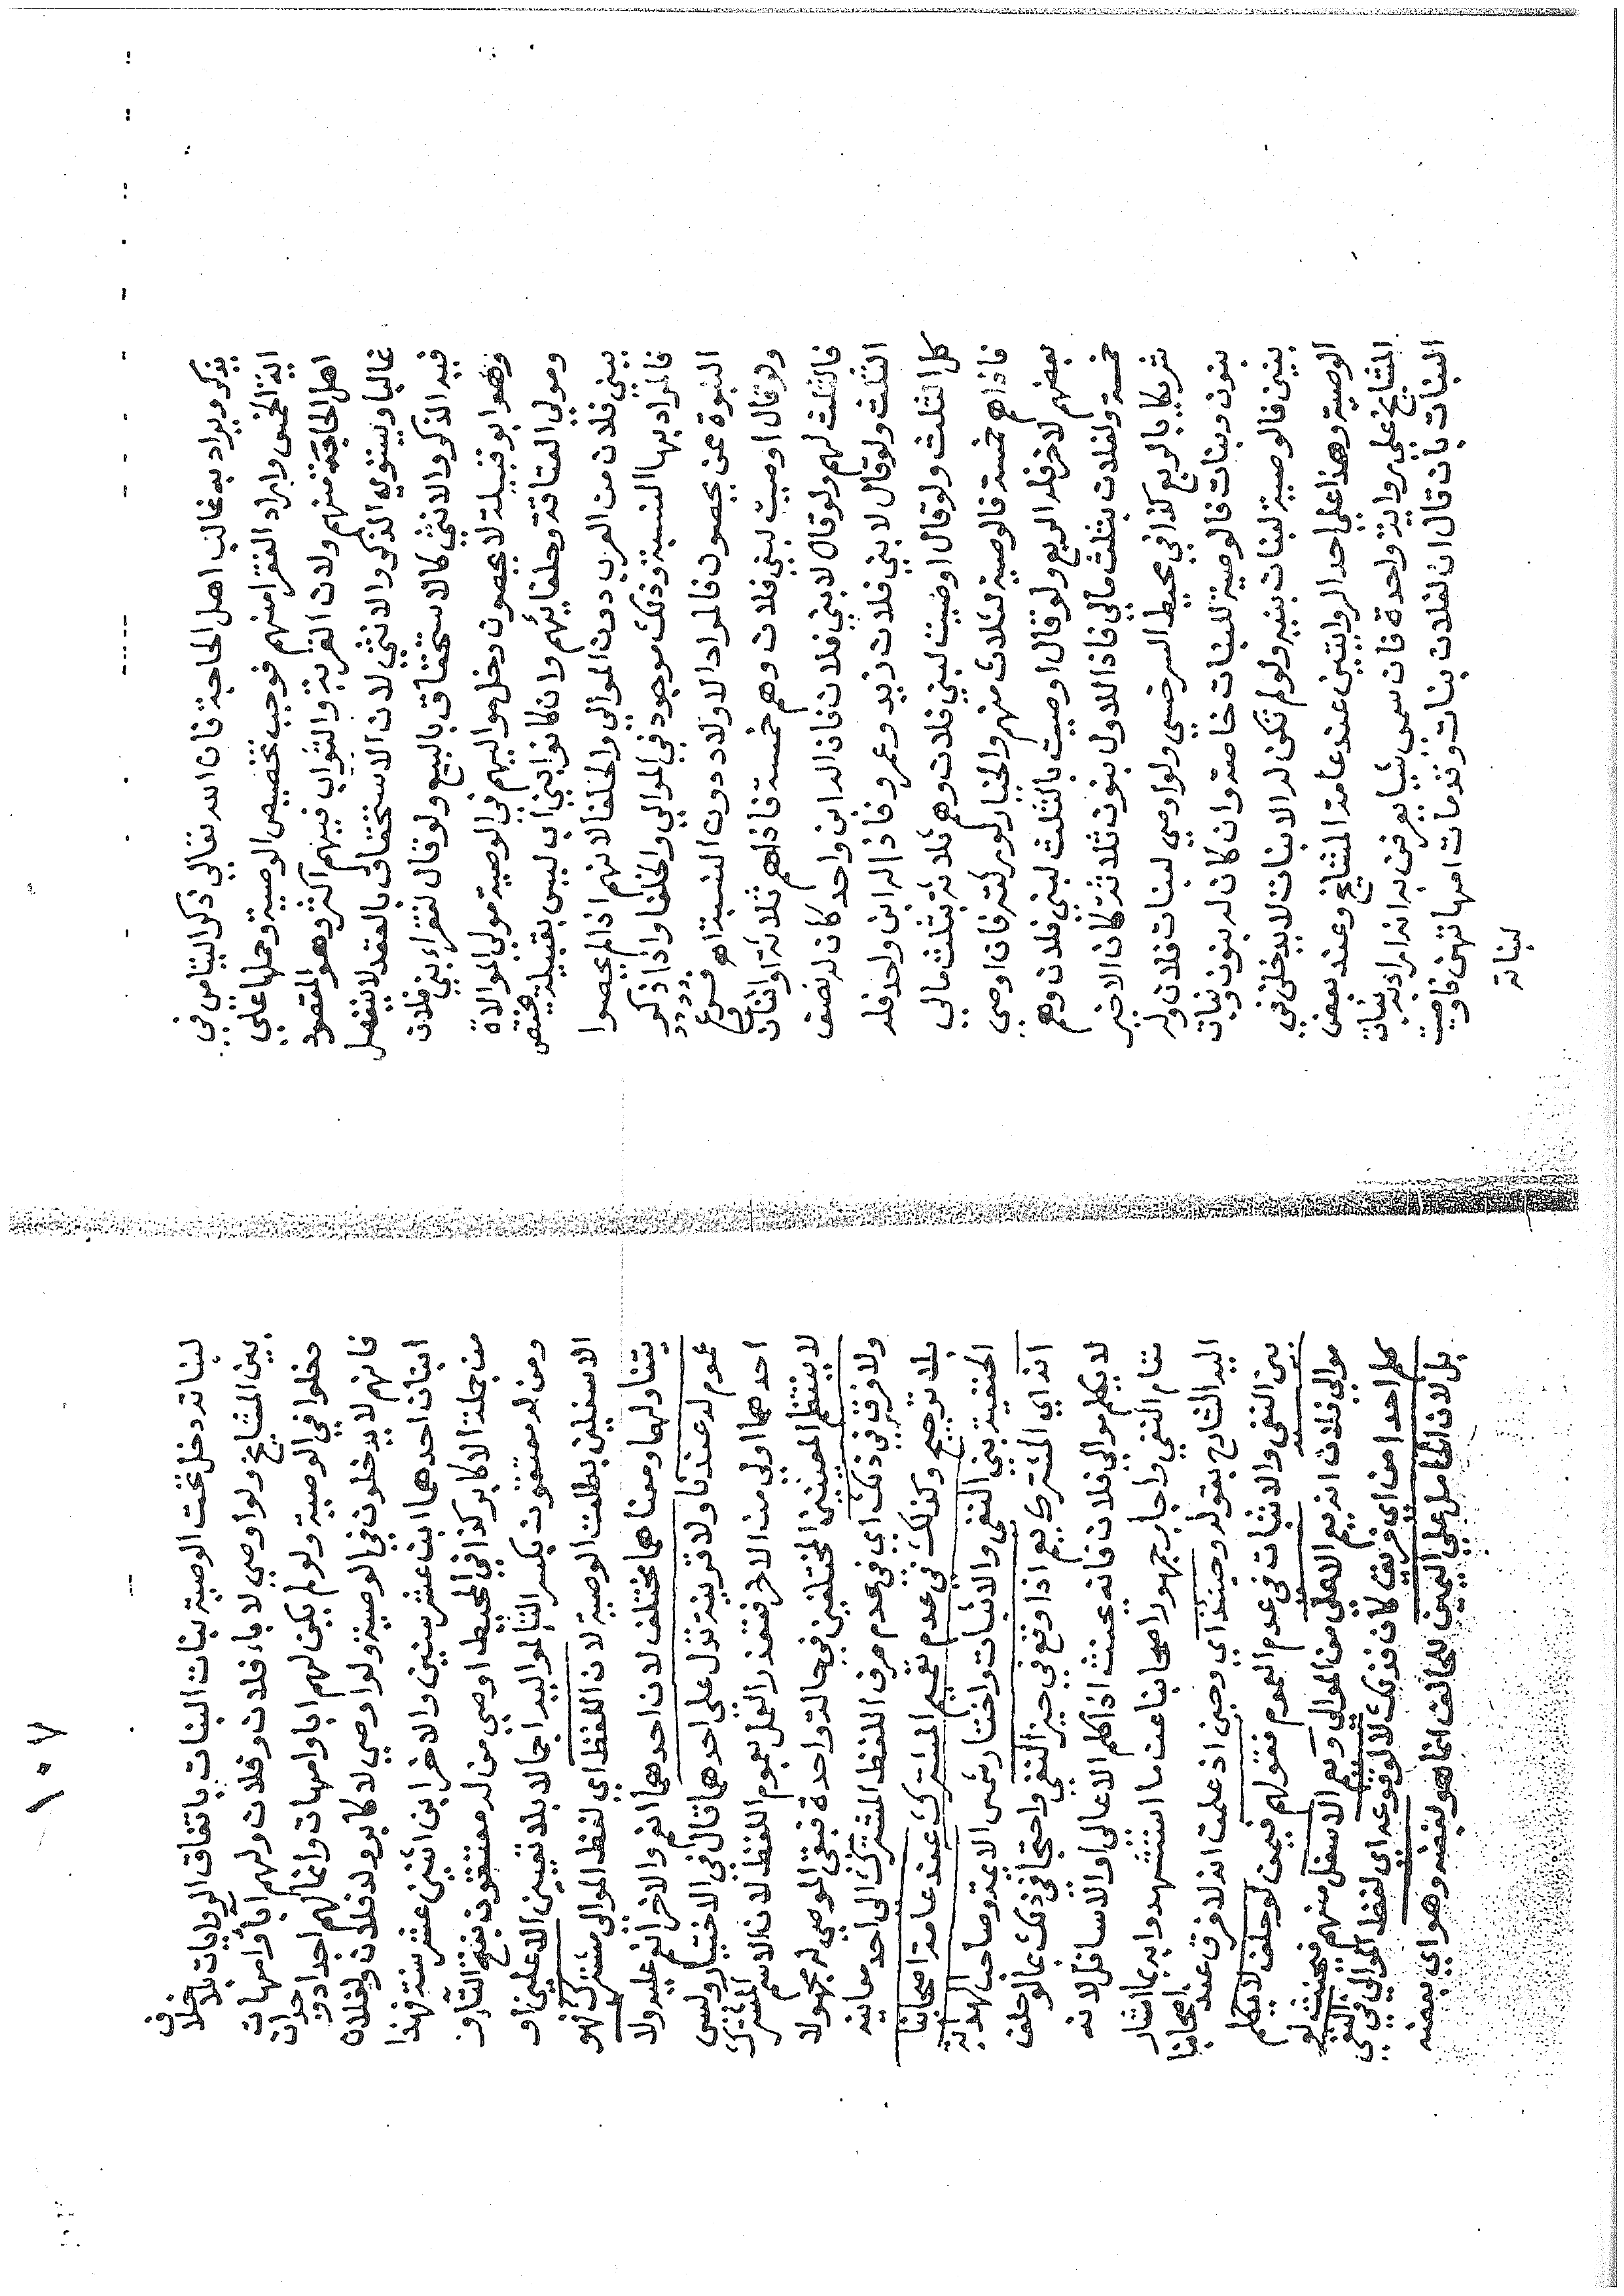 يذكر ويراد به غالب اهل الحاجة فان الله تعالي ذكر اليتامي في
اية الخمس واراد الفقرا منهم فوجب تخصيص الوصية وحملها علي
اهل الحاجة منهم ولان القربة والثواب فيهم اكثر وهو المقصود
غالبا ويستوي الذكر والانثي لان الاستحقاق بالعقد لا يفضل
فيه الذكر والانثي كالاستحقاق بالبيع ولو قال لفقراء بني فلان
وهو ابو قبيلة لا يحصون دخل مواليهم في الوصية مولي الموالاة
ومولي العتاقة وحلفايهم وان كانوا بني اب ليس بقبيلة يختص
ببني فلان من العرب دون الموالي والحلفا لانهم اذا لم يحصوا
فالمراد بها النسبة وذلك موجود في الموالي والحلفا واذا ذكر
البنوة عن يحصون فالمراد الاولاد دون النسبة اهـ فروع
ولو قال اوصيت لبني فلان وهم خمسة فاذاهم ثلاثة او اثنان
فالثلث لهم ولو قال لابني فلان فاذا له ابن واحد كان له نصف
الثلث ولو قال لابني فلان زيد وعمرو فاذا له ابن واحد فله
كل الثلث ولو قال اوصيت لبني فلان وهم ثلاثة بثلث مالي
فاذا هم خمسة فالوصية لثلاث منهم والخيار لورثته فان اوصي
بعضهم لاخر فله الربع ولو قال اوصيت بالثلث لبني فلان وهم
خمسة ولفلان بثلث مالي فاذا للاول بنون ثلاثة كان الاخير
شريكا بالربع كذا في محيط السرخسي ولو اوصي لبنات فلان وله
بنون وبنات فالوصية للبنات خاصة وان كان له بنون وبنات
بنين فالوصية لبنات بنيه ولو لم تكن له الا بنات لا يدخلن في
الوصية وهذا علي احد الروايتين عند عامة المشايخ وعند بعض
المشايخ علي رواية واحدة فان سمي شيا يعرف به انه اراد به بنات
البنات بان قال ان لفلان بنات وقد مات امهاتهن فاوصيت
لبناته
١٠٧
لبناته دخل تحت الوصية بنات البنات باتفاق الروايات بلا خلاف
بين المشايخ ولو اوصي لاباء فلان وفلان ولهم ابا وامهات
دخلوا في الوصية ولو لم يكن لهم ابا وامهات وانما لهم اجداد وجدات
فانهم لا يدخلون في الوصية ولو اوصي لاكابر ولد فلان ولفلان
ابنان احدهما ابن عشر سنين والاخر ابن اثني عشر سنة فهذا
من جملة الاكابر كذا في المحيط اوصي من له معتقون بفتح التا و
ومن له معتقون بكسر التا لمواليه اجمالا بلا تعيين الاعلين او
الاسفلين بطلت الوصية لان اللفظ اي لفظ الموالي مشترك فهو
يتناولهما ومعناهما مختلف لان احدهما انعم والاخر انعم عليه ولا
عموم له عندنا ولا قرينة تدل علي احدهما قال في الاختيار وليس
احدهما اولي من الاخر فتعذر العمل بعموم اللفظ لان الاسم المشترك
لا ينتظم المعنيين المختلفين في حالة واحدة فبقي الموصي له مجهولا
ولا فرق في ذلك اي في عدم صرف اللفظ المشترك الي احد معانيه
بلا ترجيح وكذلك في عدم تعميم المشترك عند عامة اصحابنا
الحنفية بين النفي والاثبات واختار شمس الايمة وصاحب الهداية
انه اي المشترك يعم اذا وقع في حيز النفي واحتجا في ذلك بما لو حلف
لا يكلم موالي فلان فانه يحنث اذا كلم الاعالي او الاسافل لانه
مقام النفي واجاب جمهور اصحابنا عن ما استشهدوا به بما اشار
اليه الشارح بقوله وحينئذ اي وحين اذ علمت انه لا فرق عند اصحابنا
بين النفي والاثبات في عدم العموم فقولهم فيمن لو حلف لا يكلم
موالي فلان انه يعم الاعلي من الموالي ويعم الاسفل منهم فيحنث لو
كلم احدا من اي فريق كان فذلك لا لوقوعه اي لفظ الموالي في النفي
بل لان الحامل علي اليمين للحالف انما هو بغضه وهو اي بغضه